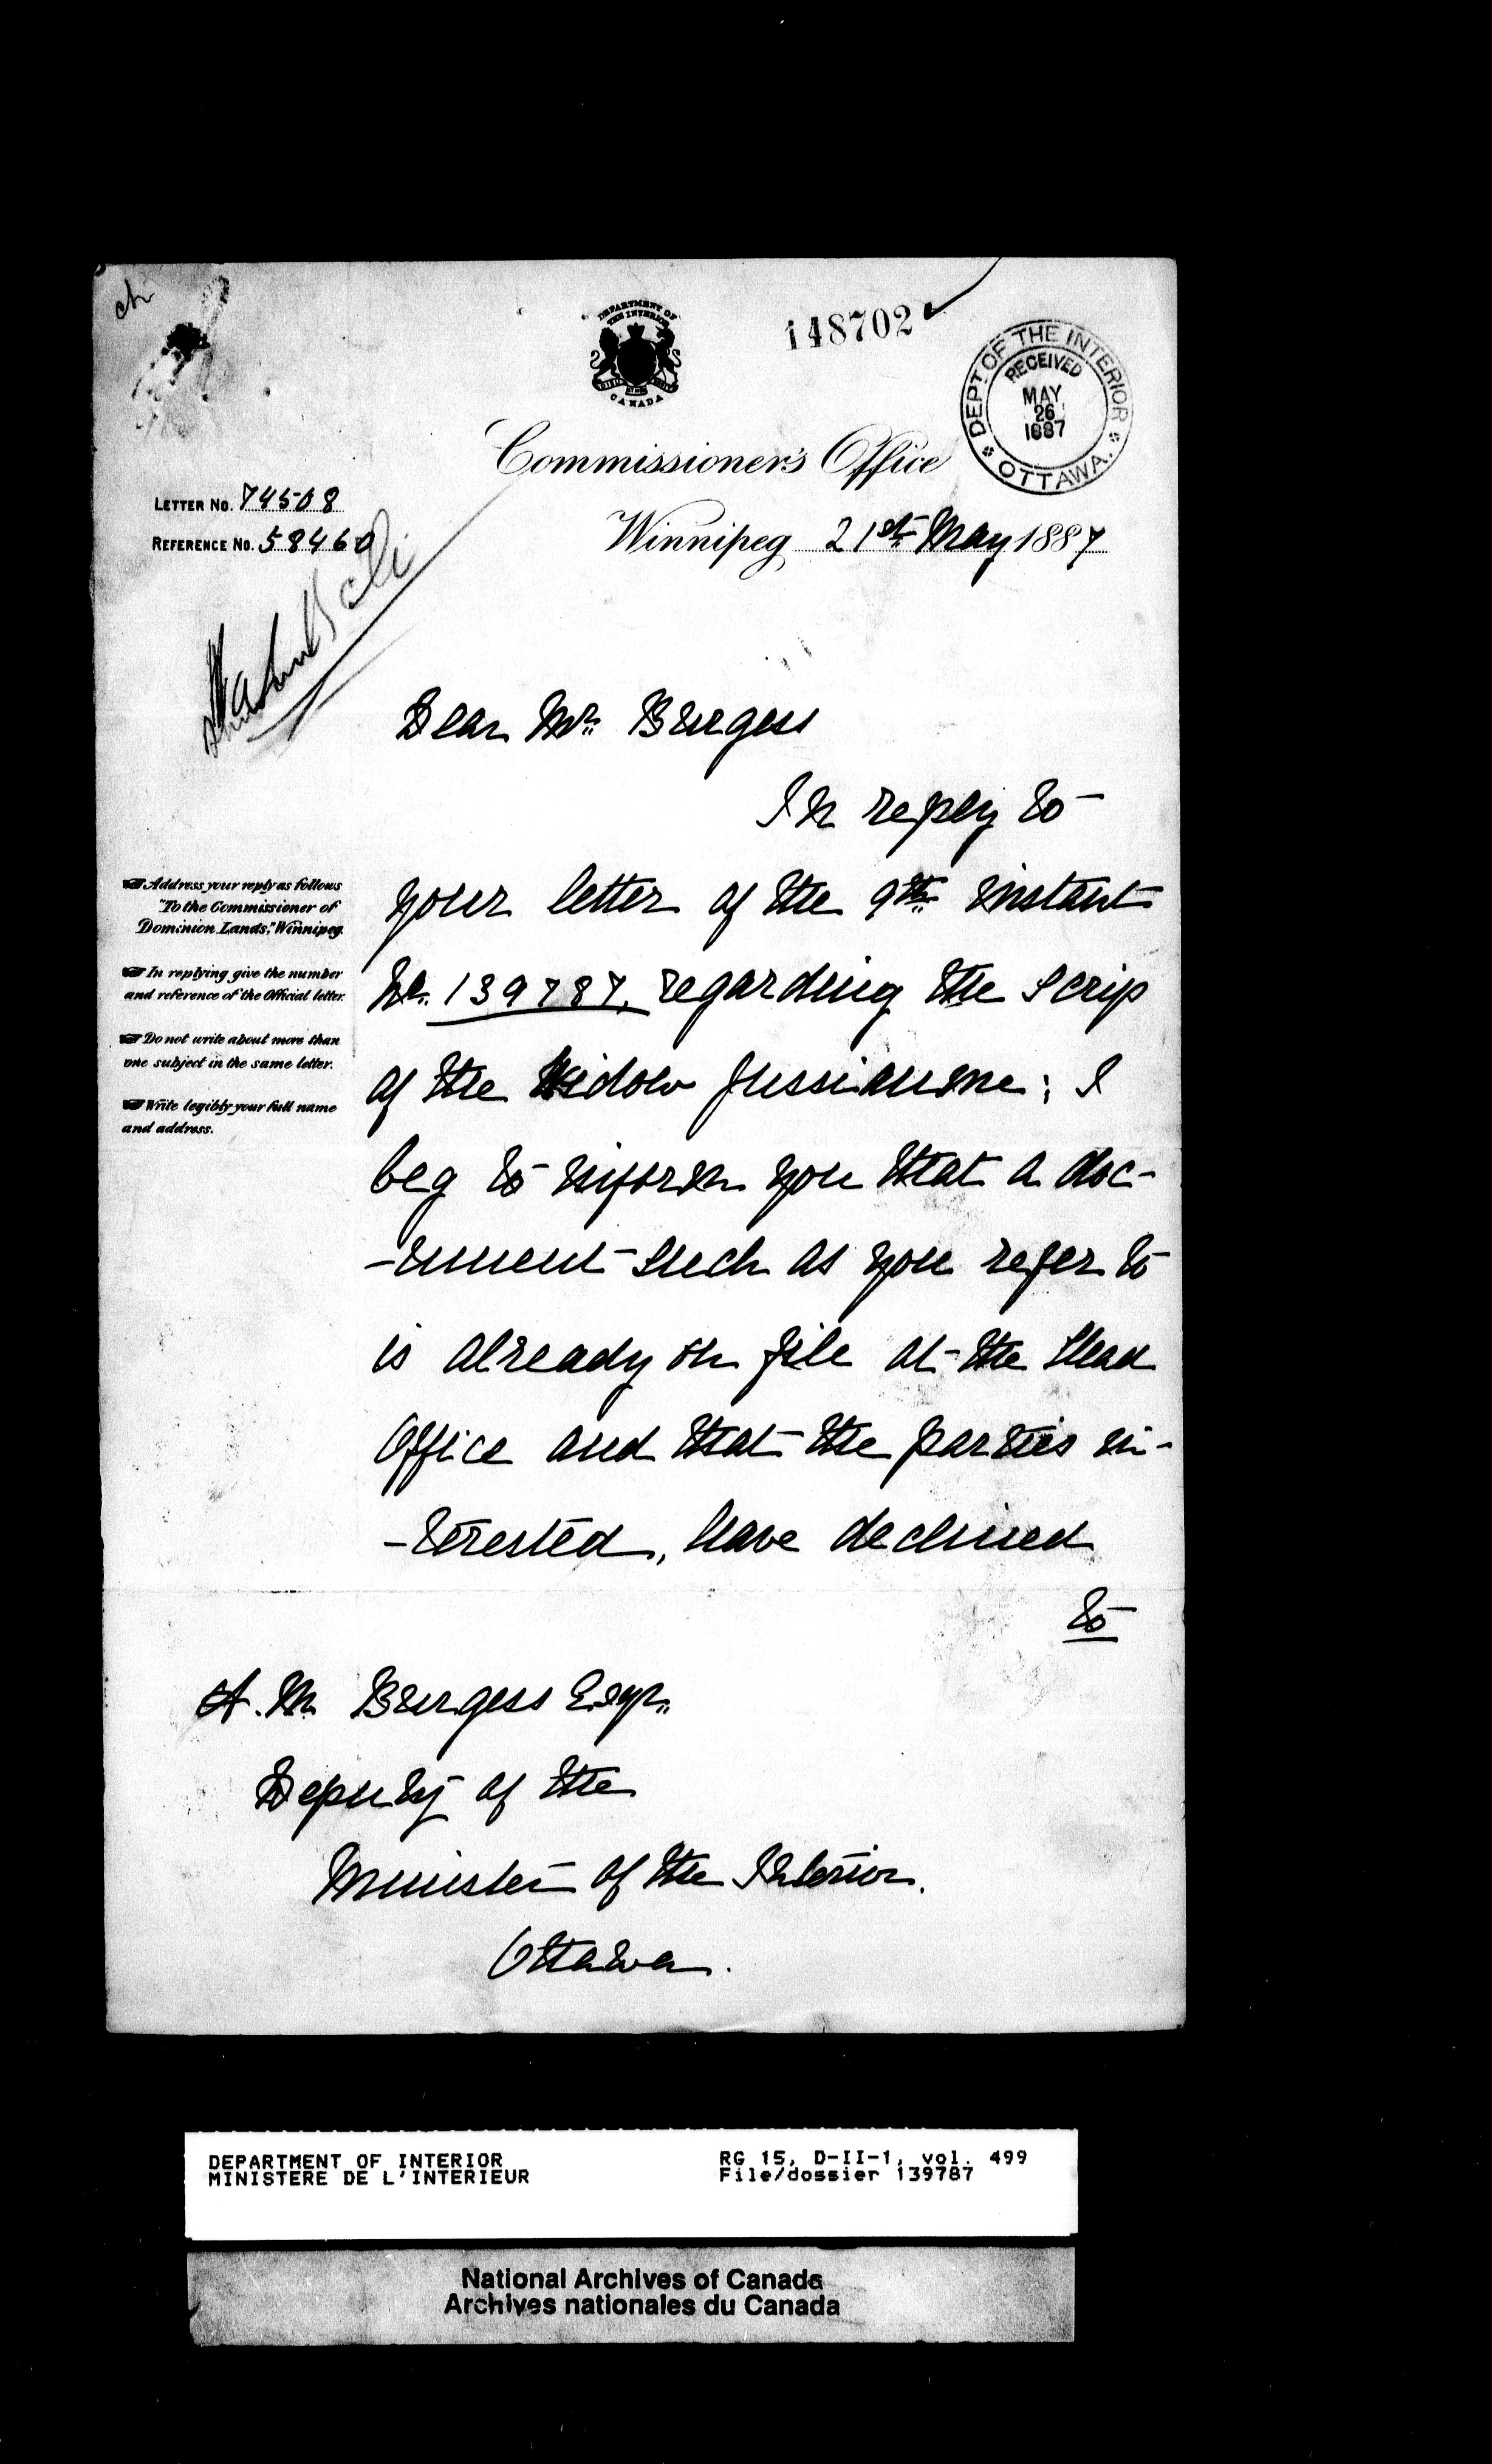 ch
DEPARTMENT OF
THE INTERIOR
CANADA
148702
DEPT OF THE INTERIOR
RECEIVED
MAY
26
1887
OTTAWA.
Commissioner's Office
LETTER NO. 74508
REFERENCE NO. 58460
Winnipeg 21st May 1887
Dear Mr. Burgess
In reply to
your letter of the 9th instant
No. 139787, regarding the Scrip
of the Widow Jussiaume; I
beg to inform you that a doc-
-ument such as you refer to
is already on file at the Head
Office and that the parties in-
-terested, have declined
to
Address your reply as follows
"To the Commissioner of
Dominion Lands," Winnipeg.
In replying give the number
and reference of the Official letter.
Do not write about more than
one subject in the same letter.
Write legibly your full name
and address.
A. M. Burgess Esqr.
Deputy of the
Minister of the Interior.
Ottawa.
DEPARTMENT OF INTERIOR
MINISTERE DE L'INTERIEUR
RG 15, D-II-1, vol. 499
File/dossier 139787
National Archives of Canada
Archives nationales du Canada